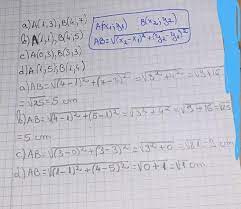 a) A(1,3), B(4,7)
b) A(1,1), B(4,5)
c) A(0,3), B(3,3)
d) A(1,5), B(1,4)
A(x₁,y₁) B(x₂,y₂)
AB=√(x₂-x₁)²+(y₂-y₁)²
a) AB=√(4-1)²+(7-3)²=√3²+4²=√9+16
=√25=5 cm
b) AB=√(4-1)²+(5-1)²=√3²+4²=√9+16=√25
=5 cm
c) AB=√(3-0)²+(3-3)²=√3²+0
d) AB=√(1-1)²+(4-5)²=√0+1=√1 cm